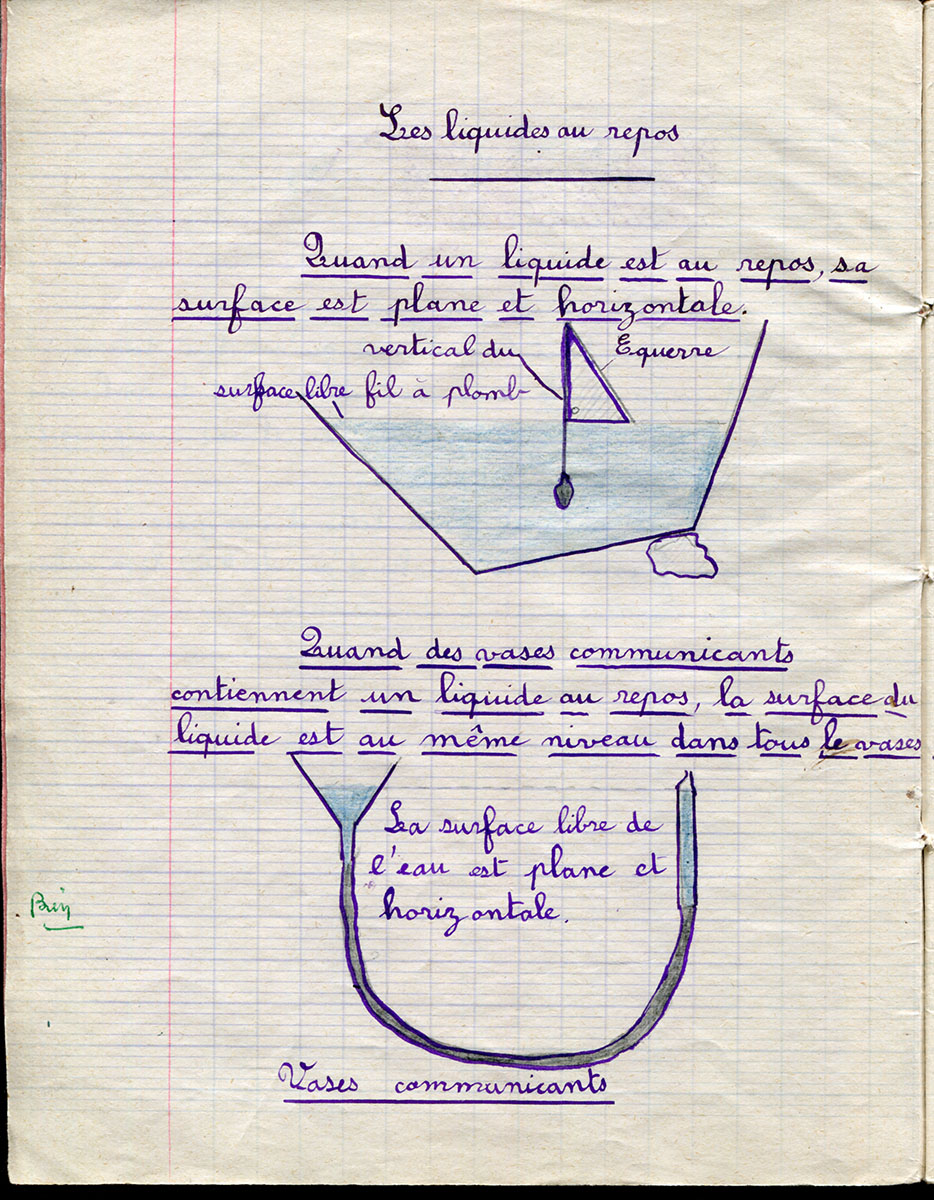 Les liquides au repos
Quand un liquide est au repos, sa
surface est plane et horizontale.
vertical du
Equerre
surface libre fil à plomb
Quand des vases communicants
contiennent un liquide au repos, la surface du
liquide est au même niveau dans tous le vases
La surface libre de
l'eau est plane et
horizontale.
Vases communicants